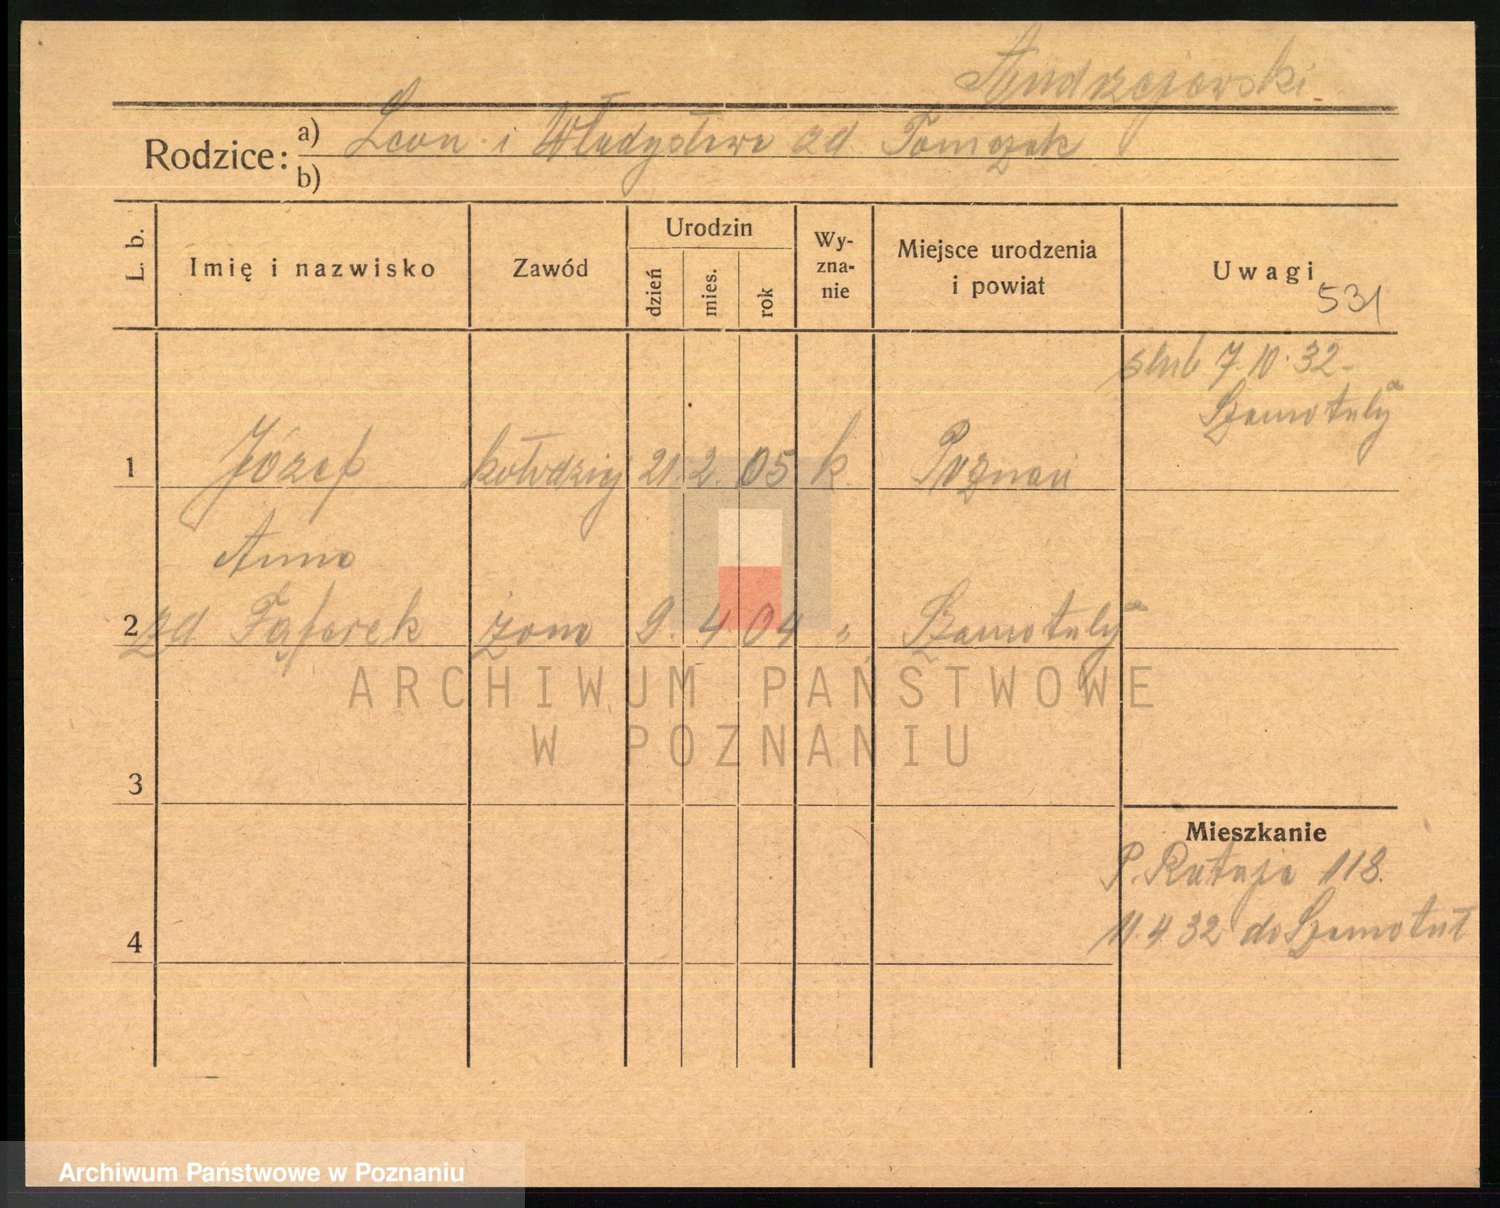 Andrzejewski
Rodzice: a) Leon i Władysława zd Tomczak
b)
L. b.
Imię i nazwisko
Zawód
Urodzin
dzień
mies.
rok
Wy-
zna-
nie
Miejsce urodzenia
i powiat
Uwagi
531
ślub 7.10.32
Szamotuły
1 Józef kołodziej 21. 2. 05. k. Poznań
Anna
2 zd żona 9. 4 04 " Szamotuły
3
4
Mieszkanie
P. Rataje 118.
11.4.32 do Szamotuł
ARCHIWUM PAŃSTWOWE
W POZNANIU
Archiwum Państwowe w Poznaniu